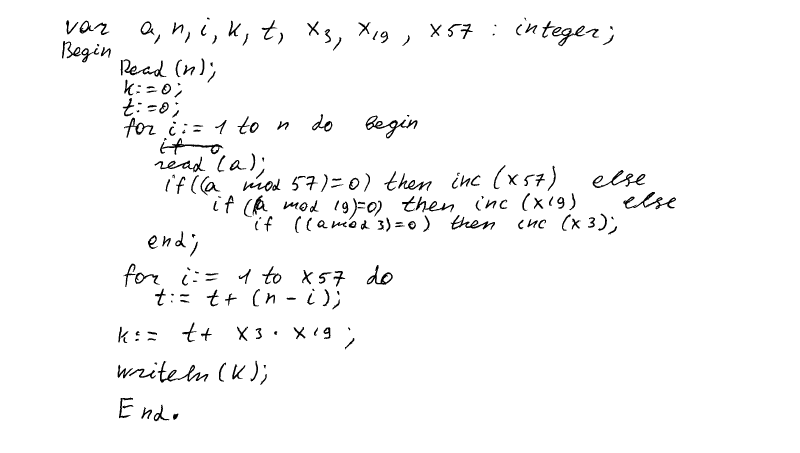 var a, n, i, k, t, x3, x19, x57 : integer;
Begin
Read (n);
k:=0;
t:=0;
for i:= 1 to n do Begin
if 0
read (a);
if((a mod 57)=0) then inc (x57) else
if (a mod 19)=0) then inc (x19) else
if ((a mod 3)=0) then inc (x3);
end;
for i:= 1 to x57 do
t:= t+ (n-i);
k:= t+ x3 · x19;
writeln(k);
End.